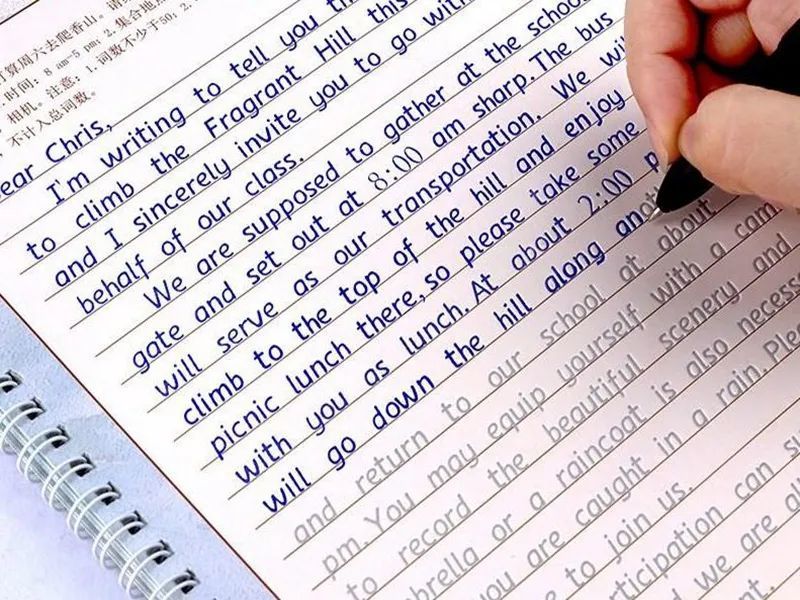 打算周六去爬香山。
时间：8 am-5 pm；2.集合地点
相机。注意：1.词数不少于50；2.
不计入总词数。
Chris,
I'm writing to tell you
to climb the Fragrant Hill this
and I sincerely invite you to go with
behalf of our class.
We are supposed to gather at the school
gate and set out at 8:00 am sharp. The bus
will serve as our transportation. We will
climb to the top of the hill and enjoy
picnic lunch there, so please take some
with you as lunch. At about 2:00 p
will go down the hill along another
and return to our school at about
pm. You may equip yourself with a cam
to record the beautiful scenery and
brella or a raincoat is also necess
you are caught in a rain. Ple
e to join us.
rticipation can
d we are al